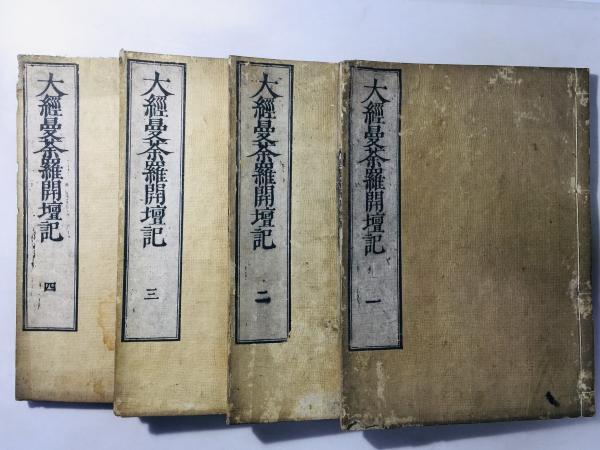 大經曼荼羅開壇記 一
大經曼荼羅開壇記 二
大經曼荼羅開壇記 三
大經曼荼羅開壇記 四